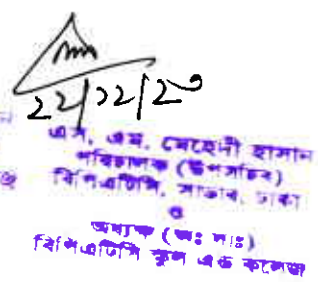 ২২/১২/২০
এস, এম, মেহেদী হাসান
পরিচালক (উপসচিব)
বিপিএটিসি, সাভার, ঢাকা
ও
অধ্যক্ষ (অঃ দাঃ)
বিপিএটিসি স্কুল এন্ড কলেজ